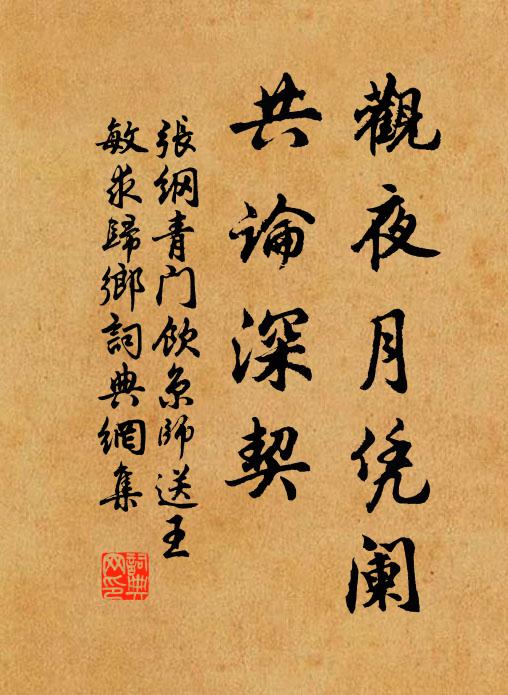 觀夜月凭闌
共論深契
張綱青门飲京師送王
敏求歸鄉詞典網集
詞典
网印